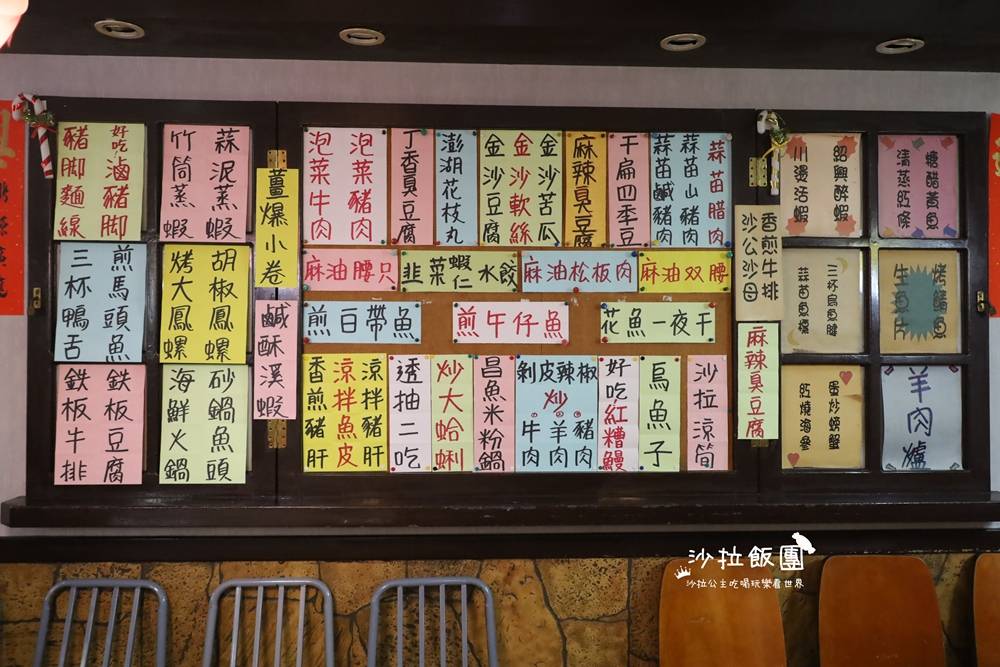 好吃滷豬腳
豬腳麵線
蒜泥蒸蝦
竹筒蒸蝦
薑爆小卷
泡菜豬肉
泡菜牛肉
丁香臭豆腐
澎湖花枝丸
金沙苦瓜
金沙軟絲
金沙豆腐
麻辣臭豆腐
干扁四季豆
蒜苗腊肉
蒜苗山豬肉
蒜苗鹹豬肉
紹興醉蝦
川燙活蝦
糖醋黃魚
香煎牛排
沙公沙母
麻油腰只
韭菜蝦仁水餃
麻油松板肉
麻油双腰
煎馬頭魚
三杯鴨舌
胡椒鳳螺
烤大鳳螺
鹹酥溪蝦
煎白帶魚
煎午仔魚
花魚一夜干
三杯烏魚腱
烤鯖魚
生魚片
鉄板豆腐
鉄板牛排
砂鍋魚頭
海鮮火鍋
涼拌豬肝
涼拌魚皮
香煎豬肝
透抽二吃
炒大蛤蜊
昌魚米粉鍋
剝皮辣椒
炒
牛肉
羊肉
豬肉
好吃紅糟鰻
烏魚子
沙拉涼筍
麻辣臭豆腐
蛋炒螃蟹
紅燒海參
羊肉爐
沙拉飯團
沙拉公主吃喝玩樂看世界